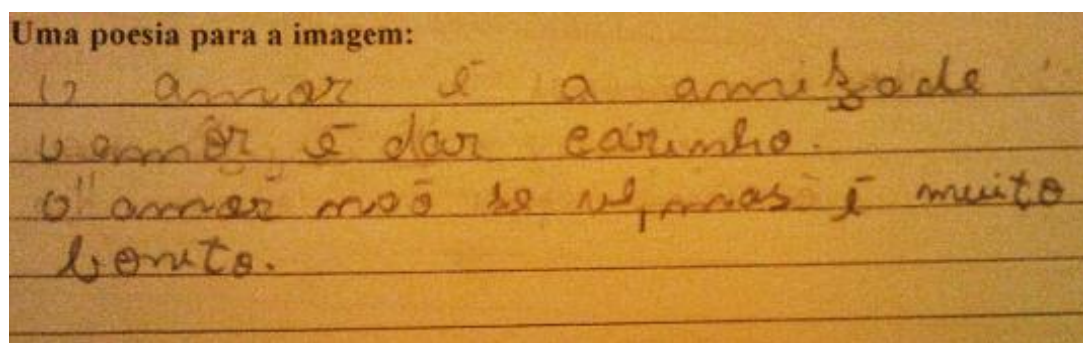 Uma poesia para a imagem:
O amor é a amizade
o amor é dar carinho.
O amor não se vê, mas é muito
bonito.